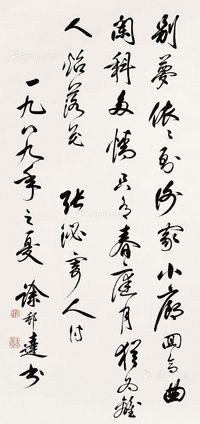 别梦依依到谢家小廊回合曲
阑斜多情只有春庭月犹为离
人照落花 张泌寄人诗
一九八九年之夏 徐邦达书